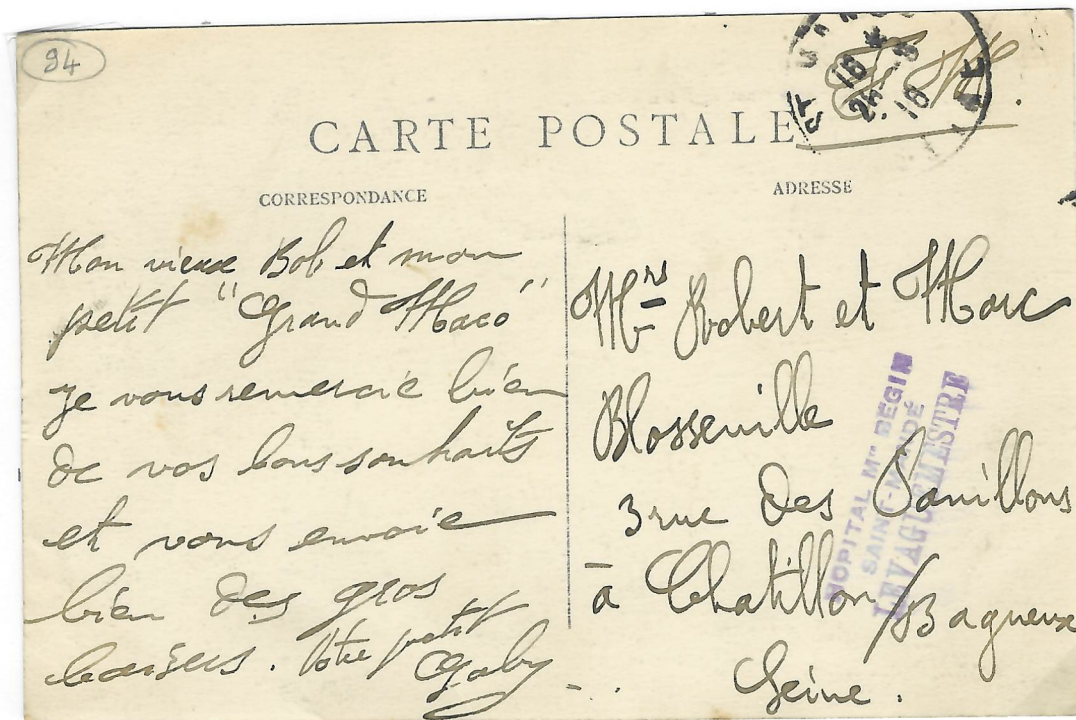 94
F M
ST MANDÉ
18 *
25 - 3
18
CARTE POSTALE
CORRESPONDANCE
ADRESSE
Mon vieux Bob et mon
petit "Grand Maco"
je vous remercie bien
de vos bons souhaits
et vous envoie
bien des gros
baisers. Votre petit
Gaby
Mrs Robert et Marc
Blosseville
3 rue des Pavillons
à Chatillon/Bagneux
Seine.
HOPITAL Mre BEGIN
SAINT-MANDÉ
LE VAGUEMESTRE